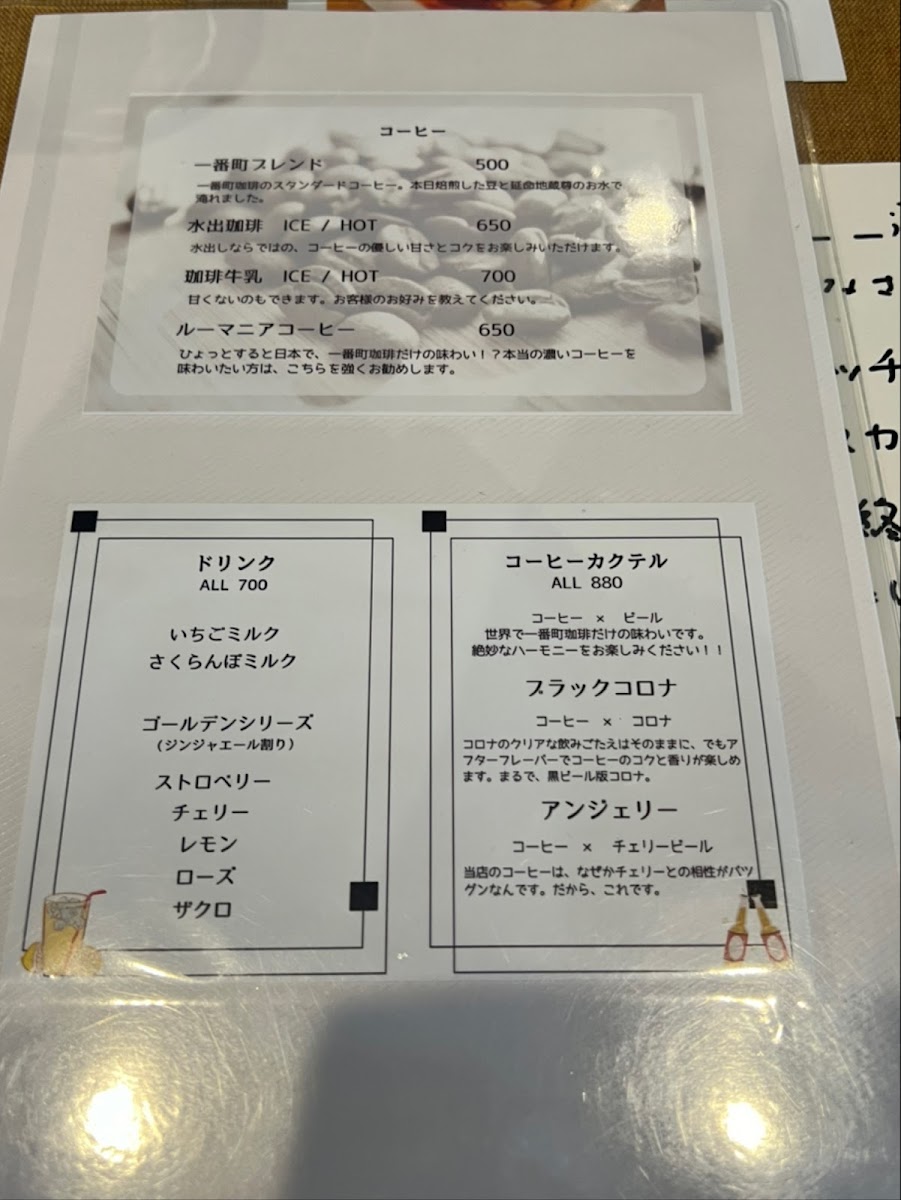 コーヒー
一番町ブレンド 500
一番町珈琲のスタンダードコーヒー。本日焙煎した豆と延命地蔵尊のお水で
淹れました。
水出珈琲 ICE / HOT 650
水出しならではの、コーヒーの優しい甘さとコクをお楽しみいただけます。
珈琲牛乳 ICE / HOT 700
甘くないのもできます。お客様のお好みを教えてください。
ルーマニアコーヒー 650
ひょっとすると日本で、一番町珈琲だけの味わい！？本当の濃いコーヒーを
味わいたい方は、こちらを強くお勧めします。
ドリンク
ALL 700
いちごミルク
さくらんぼミルク
ゴールデンシリーズ
（ジンジャエール割り）
ストロベリー
チェリー
レモン
ローズ
ザクロ
コーヒーカクテル
ALL 880
コーヒー × ビール
世界で一番町珈琲だけの味わいです。
絶妙なハーモニーをお楽しみください！！
ブラックコロナ
コーヒー × コロナ
コロナのクリアな飲みごたえはそのままに、でもア
フターフレーバーでコーヒーのコクと香りが楽しめ
ます。まるで、黒ビール版コロナ。
アンジェリー
コーヒー × チェリービール
当店のコーヒーは、なぜかチェリーとの相性がバツ
グンなんです。だから、これです。
さ
ッチ
カ
終